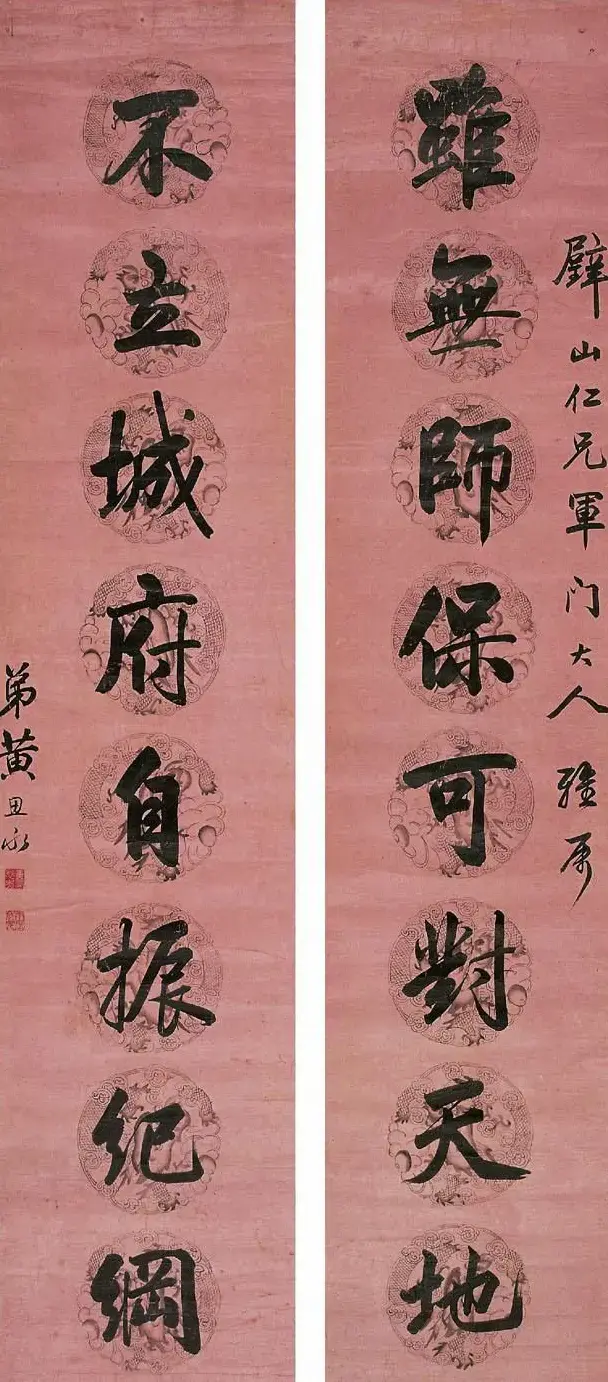 辟山仁兄軍门大人 雅属
雖無師保可對天地
不立城府自振紀綱
弟黄思永